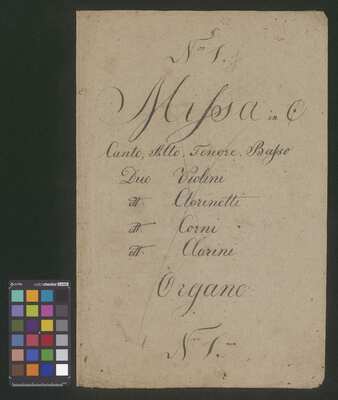 Nro 1.
Missa in C
Canto, Alto, Tenore, Basso
Duo Violini
dtt Clarinetti
dtt Corni
dtt Clarini
Organo
Nro 1.